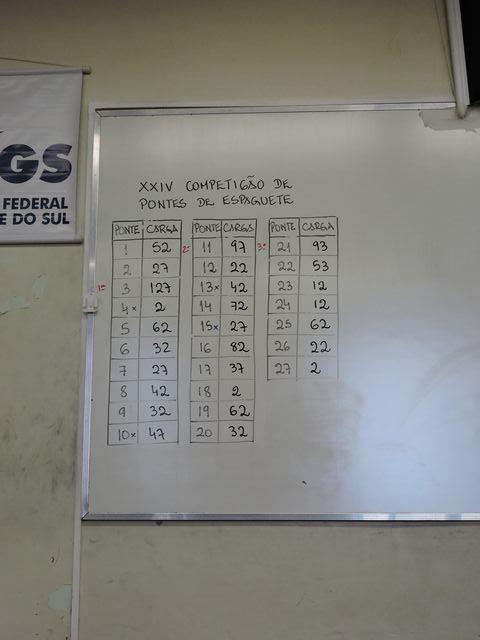 GS
FEDERAL
E DO SUL
XXIV COMPETIÇÃO DE
PONTES DE ESPAGUETE
PONTE CARGA PONTE CARGA PONTE CARGA
1 52 2º 11 97 3º 21 93
2 27 12 22 22 53
1º 3 127 13x 42 23 12
4x 2 14 72 24 12
5 62 15x 27 25 62
6 32 16 82 26 22
7 27 17 37 27 2
8 42 18 2
9 32 19 62
10x 47 20 32